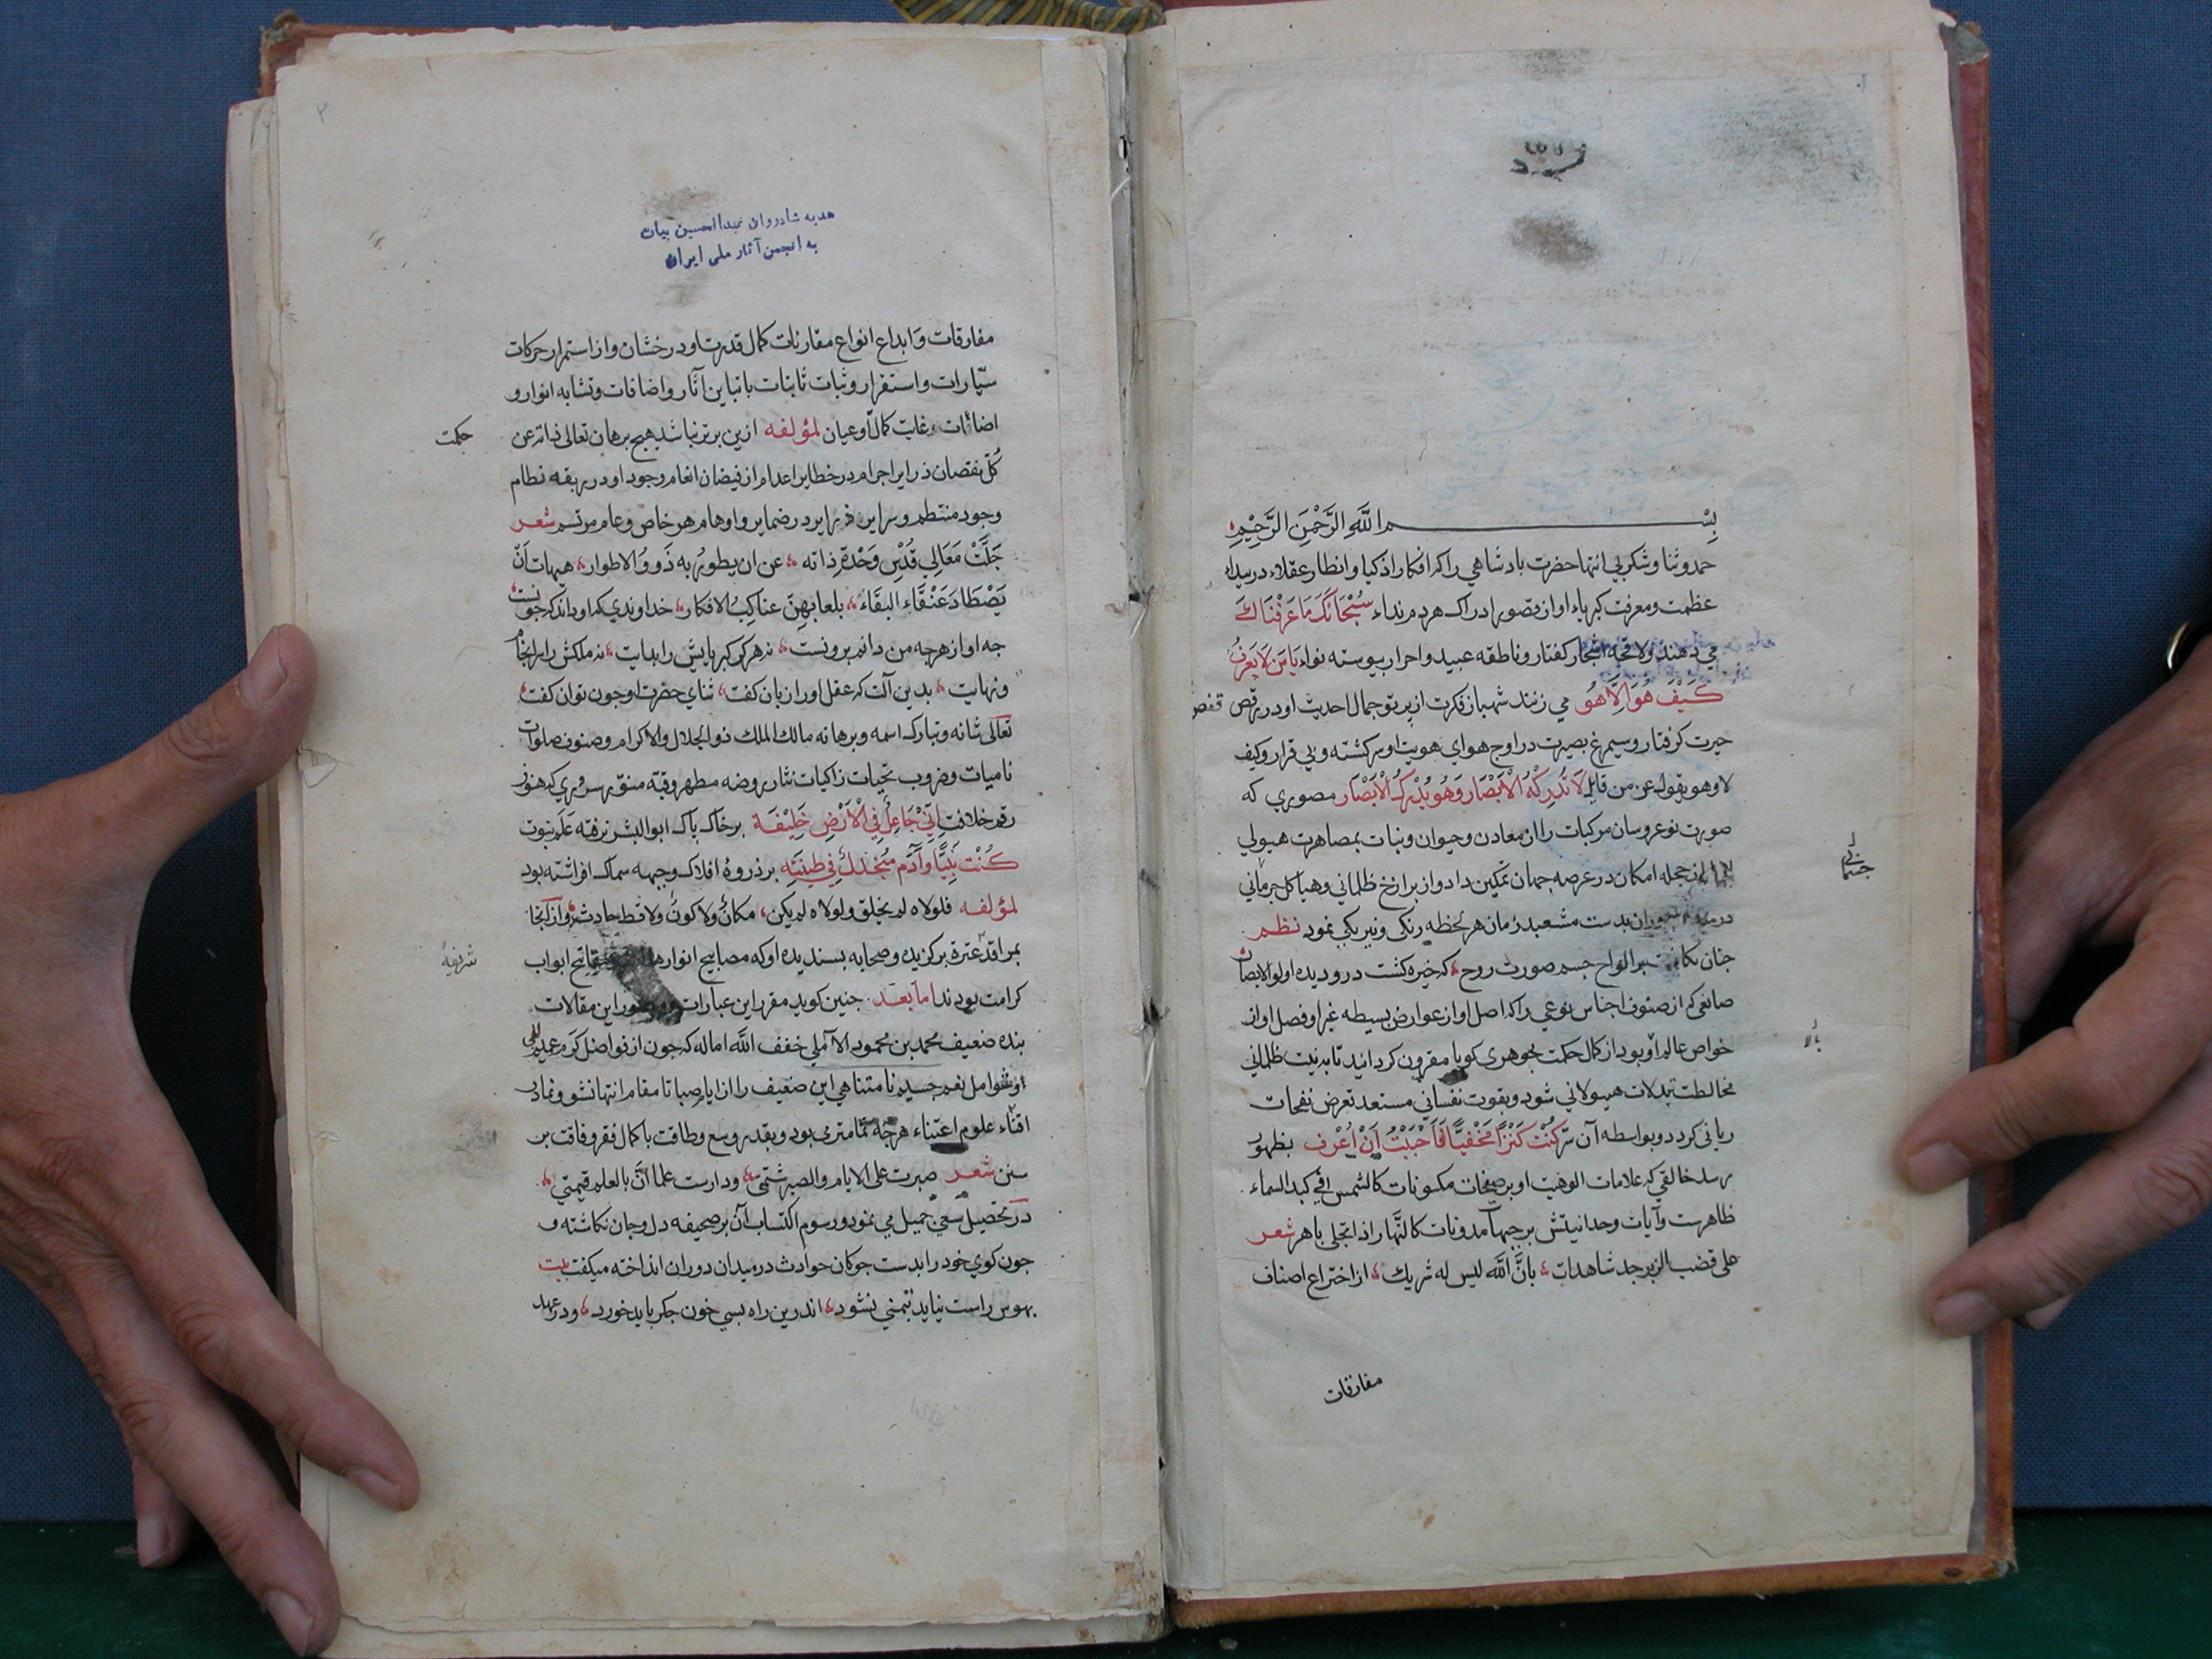 بِسْـــمِ اللَّهِ الرَّحْمَنِ الرَّحِيْمِ
حمد و ثنا و شكر بي انتها حضرت بادشاهي را كه افكار اذكيا و انظار عقلاء در بيداء
عظمت و معرفت كبرياء او از قصور ادراك هر دم نداء سُبْحَانَكَ مَا عَرَفْنَاكَ
مي دهند و لاقحه اشجار كفتار و ناطقه عبيد و احرار پيوسته نواء يَا مَنْ لَا يَعْرِفُ
كَيْفَ هُوَ اِلَّا هُوَ مي زنند شهباز فكرت از پرتو جمال احديت او در قفص
حيرت كرفتار و سيمرغ بصيرت در اوج هواي هويت او سركشته و بي قرار و كيف
لا و هو يقول عز من قايل لَا تُدْرِكُهُ الْاَبْصَار وَهُوَ يُدْرِكُ الْاَبْصَار مصوري كه
صورت نوعروسان مركبات را از معادن و حيوان و نبات بمصاهرت هيولي
از حجله امكان در عرصه جهان تمكين داد و از برازخ ظلماني و هياكل جرماني
در دوران بدست مشعبد زمان هر لحظه رنكى و نيرنكى نمود نظم
جنان بر الواح جسم صورت روح كه خيره كشت درو ديده اولو الابصار
صانعى كه از صنوف اجناس نوعي را كه اصل او از عوارض بسيطه غبرا و فصل او از
خواص عالم بالا بود از كمال حكمت بجوهرى كويا مقرون كردانيد تا بدنيت ظلماني
مخالطت تبدلات هيولاني شود و بقوت نفساني مستعد تعرض نفحات
رباني كردد و بواسطه آن سرّ كُنْتُ كَنْزًا مَخْفِيًّا فَاَحْبَبْتُ اَنْ اُعْرَف بظهور
رسد خالقي كه علامات الوهيت او بر صفحات مكونات كالشمس في كبد السماء
ظاهرست و آيات وحدانيتش بر جبهات مدونات كالنهار اذا تجلى باهر شعر
على قضب الزبرجد شاهدات بانّ اللّه ليس له شريك از اختراع اصناف
مفارقات
جسمانى
بالا
هديه شادروان عبدالحسين بيات
به انجمن آثار ملى ايران
مفارقات و ابداع انواع مقارنات كمال قدرت او درخشان و از استمرار حركات
سيّارات و استقرار و ثبات ثابتات با تباين آثار و اضافات و تشابه انوار و
اضاآت غايت كمال او عيان لمؤلفه ازين برتر نباشد هيچ برهان تعالى ذاته عن
كلّ نقصان ذراير اجرام در خطاير اعدام از فيضان انعام وجود او در ربقه نظام
وجود منتظم و سراير در ضماير و اوهام هر خاص و عام مرتسم شعر
جَلَّتْ مَعَالِي قُدْسِ وَحْدَةِ ذاته عن ان يطور به ذوو الاطوار هيهات اَنْ
يَصْطَادَ عَنْقَاءَ البقَاء بلعابهنّ عناكب الافكار خداوندي كه او داند كه جونست
جه او از هرچه من دانم برونست نه هركز كبريايش را بدايت نه ملكش را سرانجام
و نهايت بدين آلت كه عقل او را زبان كفت ثناي حضرت او جون توان كفت
تعالى شانه و تبارك اسمه و برهانه مالك الملك ذو الجلال و الاكرام و صنوف صلوات
ناميات و ضروب تحيات زاكيات نثار روضه مطهر و قبّه منوّر سروري كه هنوز
رقم خلافت اِنِّي جَاعِلٌ فِي الْاَرْضِ خَلِيْفَة بر خاك پاك ابو البشر نرفته عَلَم نبوت
كُنْت نَبِيًّا وَآدَم مُنْجَدِلٌ فِي طِيْنَتِه بر ذروهٔ افلاك و جبهه سماك افراشته بود
لمؤلفه فلولاه لم يخلق و لولاه لم يكن مكانٌ و لا كونٌ و لا قط حادث و از انجا
بمراقد عترة بركزيده و صحابه پسنديده او كه مصابيح انوار و مفاتيح ابواب
كرامت بودند اما بعد جنين كويد مقرر اين عبارات اين مقالات
بنده ضعيف محمد بن محمود الآملي خفف اللّه اماله كه جون از فواضل كرم
و شوامل نعم جسيم نامتناهي اين ضعيف را از ايام صبا تا مقام انتها نشو و نما در
اقناء علوم اعتناء هرچه تمامتر مي بود و بقدر وسع و طاقت با كمال فقر و فاقت بر
سنن شعر صبرت على الايام و الصبر شيمتي و دارست علما انّ بالعلم قيمتي
در تحصيل سعي جميل مي نمود و رسوم اكتساب آن بر صحيفه دل و جان نكاشته و
جون كوي خود را بدست جوكان حوادث در ميدان دوران انداخته ميكفت بيت
بهوس راست نيايد بتمني نشود اندرين راه بسي خون جكر بايد خورد و در عهد
حكمت
شريفه
٢